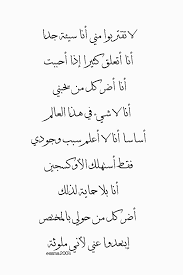 لا تقتربوا مني أنا سيئة جدا
أنا أتعلق كثيرا إذا أحببت
أنا أضر كل من سخبني
أنا لا شيء في هذا العالم
أساسا أنا لا أعلم سبب وجودي
فقط أستهلك الأوكسجين
أنا بلا حماية لذلك
أضر كل من حولي بالمختصر
إبتعدوا عني لأنني ملوثة
eesma2005